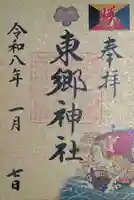 奉拝
東郷神社
令和八年 一月 七日